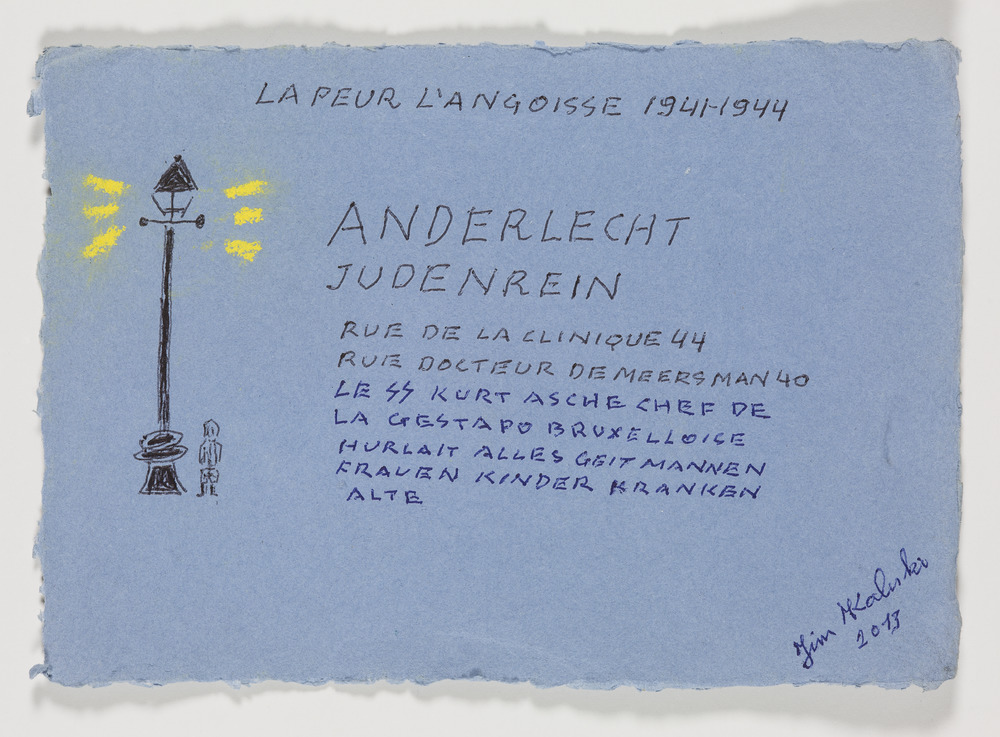 LA PEUR L'ANGOISSE 1941-1944
ANDERLECHT
JUDENREIN
RUE DE LA CLINIQUE 44
RUE DOCTEUR DE MEERSMAN 40
LE SS KURT ASCHE CHEF DE
LA GESTAPO BRUXELLOISE
HURLAIT ALLES GEIT MANNEN
FRAUEN KINDER KRANKEN
ALTE
Jim Kaliski
2013